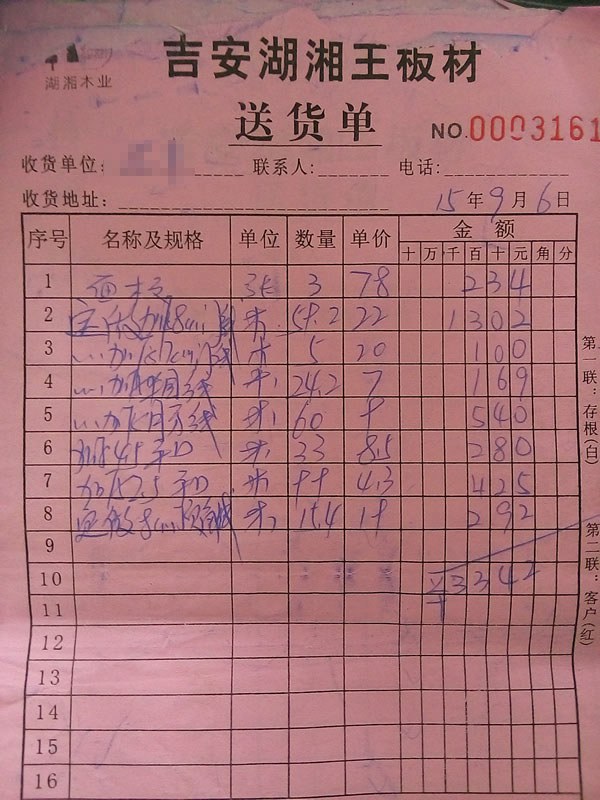 湖湘木业
吉安湖湘王板材
送货单
NO.0003161
收货单位: 联系人: 电话:
收货地址: 15年9月6日
序号 名称及规格 单位 数量 单价 金额
十 万 千 百 十 元 角 分
1 面板 张 3 78 234
2 米 22 1302
3 米 5 20 100
4 米 24.2 7 169
5 米 60 9 540
6 米 33 8.5 280
7 米 99 4.3 425
8 米 15.4 19 292
9
10 3342
11
12
13
14
15
16
第一联:存根(白)
第二联:客户(红)